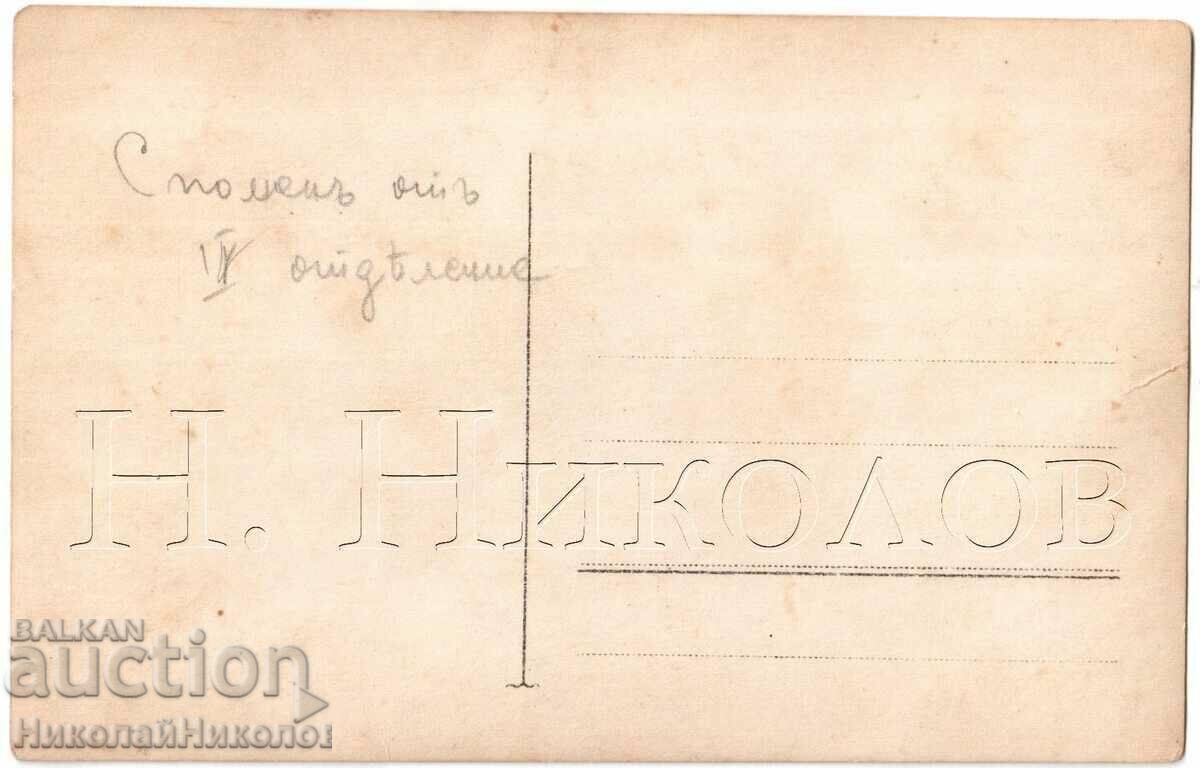 Споменъ отъ
отдѣление
Н. Николов
BALKAN
auction
НиколайНиколов